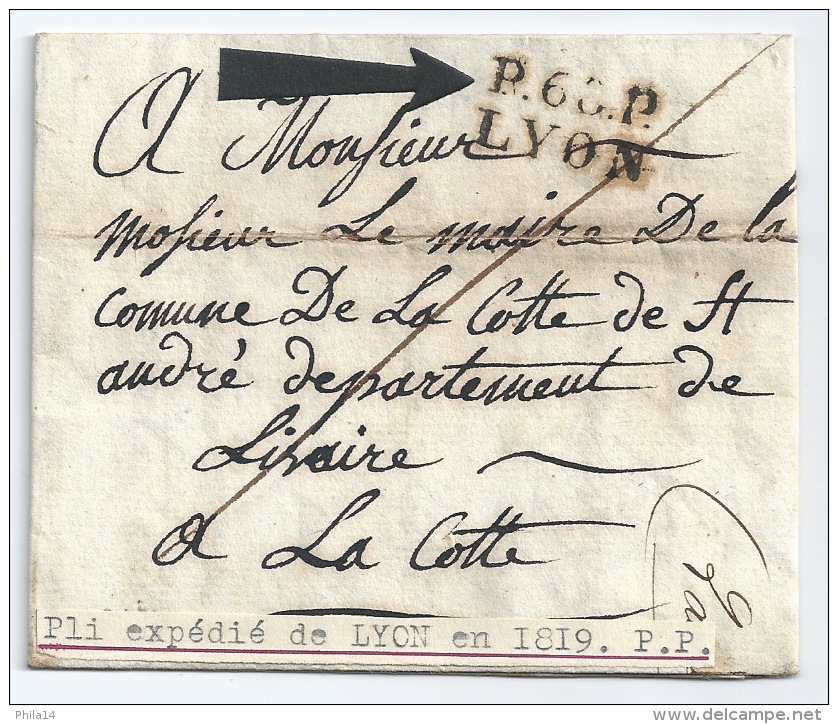 P.68.P.
LYON
A Monsieur
mosieur Le maire De la
comune De La Cotte de St
andré departement de
Liseire
a La Cotte
Pli expédié de LYON en 1819. P.P.
Phila14
www.delcampe.net